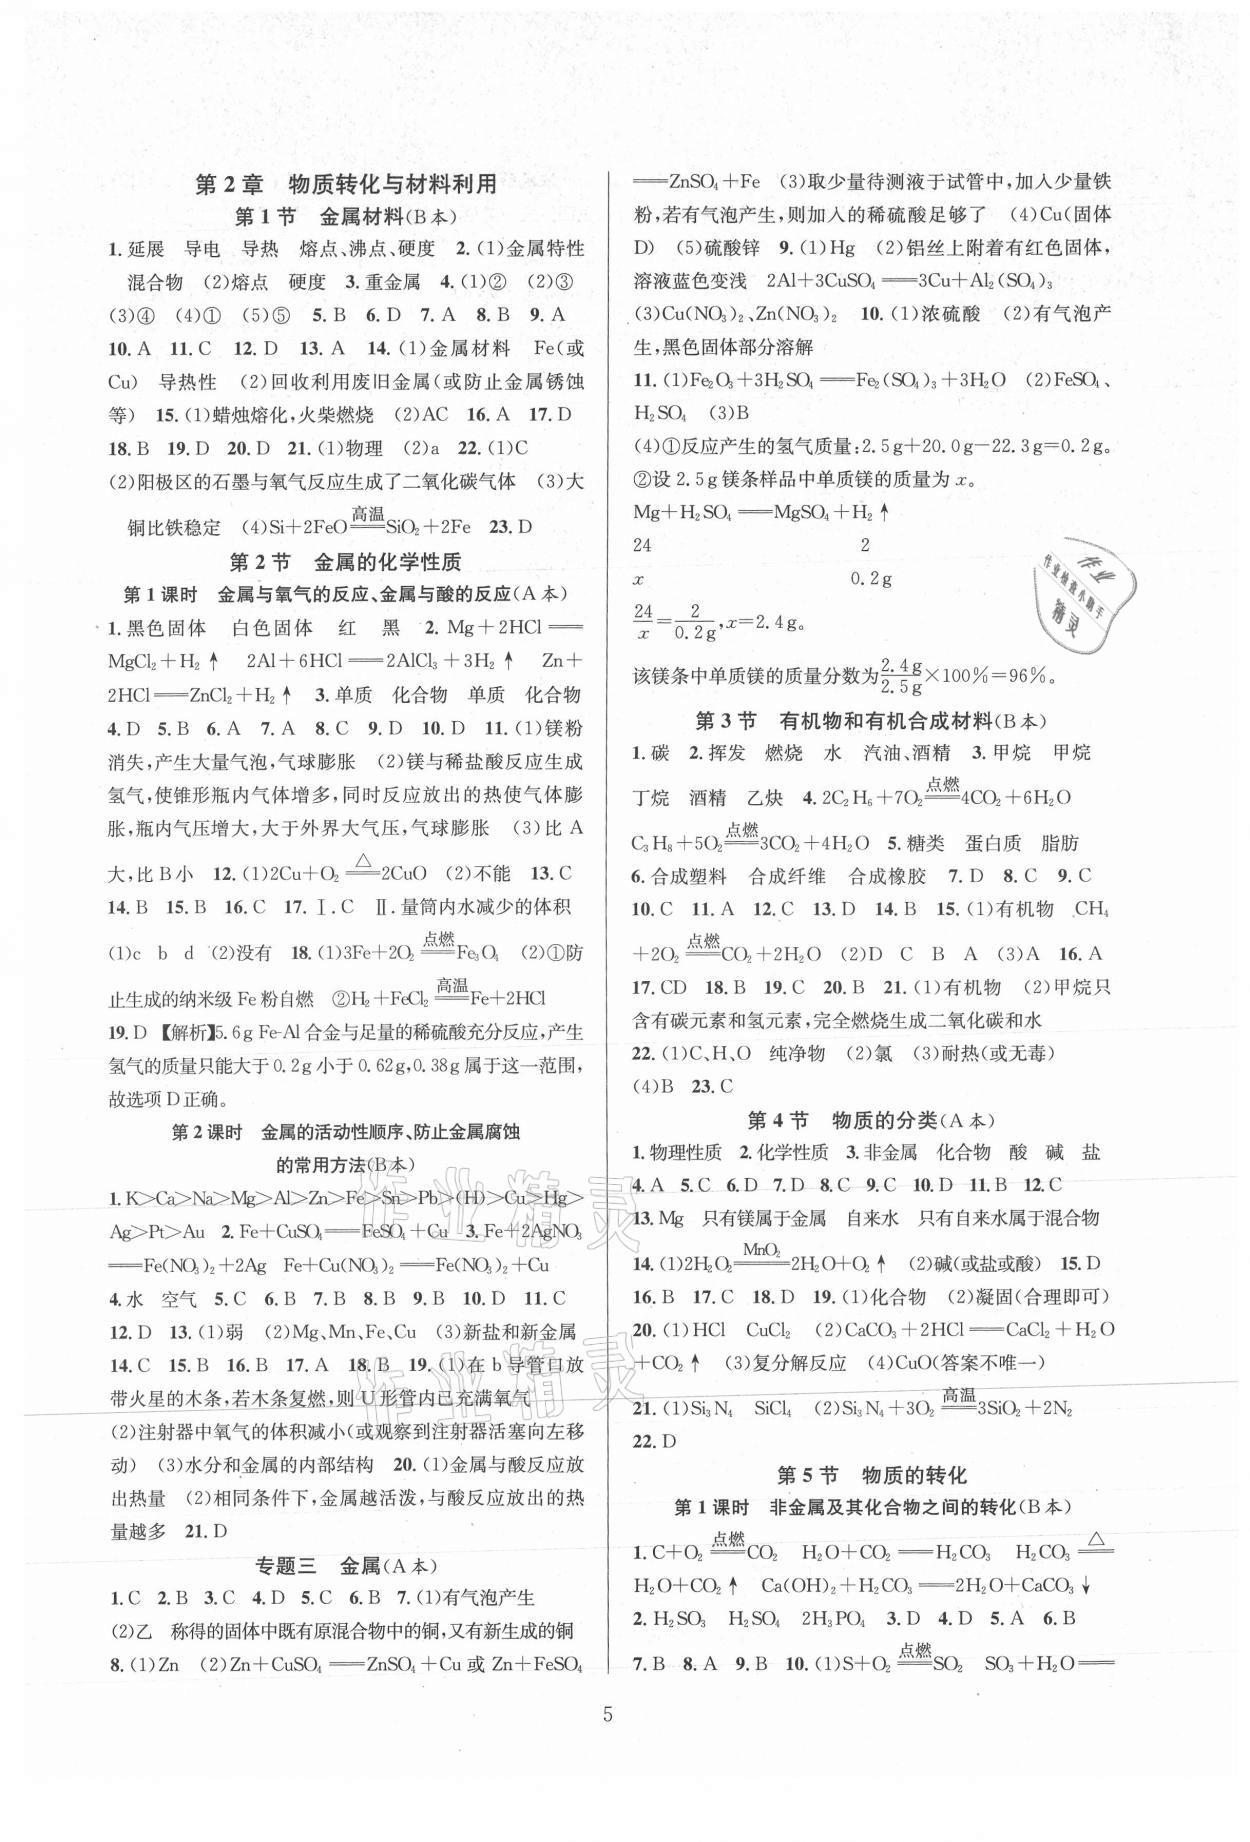 第2章 物质转化与材料利用
第1节 金属材料(B本)
1.延展 导电 导热 熔点、沸点、硬度 2.(1)金属特性
混合物 (2)熔点 硬度 3.重金属 4.(1)② (2)③
(3)④ (4)① (5)⑤ 5.B 6.D 7.A 8.B 9.A
10.A 11.C 12.D 13.A 14.(1)金属材料 Fe(或
Cu) 导热性 (2)回收利用废旧金属(或防止金属锈蚀
等) 15.(1)蜡烛熔化,火柴燃烧 (2)AC 16.A 17.D
18.B 19.D 20.D 21.(1)物理 (2)a 22.(1)C
(2)阳极区的石墨与氧气反应生成了二氧化碳气体 (3)大
铜比铁稳定 (4)Si+2FeO高温══SiO₂+2Fe 23.D
第2节 金属的化学性质
第1课时 金属与氧气的反应、金属与酸的反应(A本)
1.黑色固体 白色固体 红 黑 2.Mg+2HCl══
MgCl₂+H₂↑ 2Al+6HCl══2AlCl₃+3H₂↑ Zn+
2HCl══ZnCl₂+H₂↑ 3.单质 化合物 单质 化合物
4.D 5.B 6.A 7.A 8.C 9.D 10.D 11.(1)镁粉
消失,产生大量气泡,气球膨胀 (2)镁与稀盐酸反应生成
氢气,使锥形瓶内气体增多,同时反应放出的热使气体膨
胀,瓶内气压增大,大于外界大气压,气球膨胀 (3)比A
大,比B小 12.(1)2Cu+O₂△══2CuO (2)不能 13.C
14.B 15.B 16.C 17.Ⅰ.C Ⅱ.量筒内水减少的体积
(1)c b d (2)没有 18.(1)3Fe+2O₂点燃══Fe₃O₄ (2)①防
止生成的纳米级Fe粉自燃 ②H₂+FeCl₂高温══Fe+2HCl
19.D 【解析】5.6g Fe-Al合金与足量的稀硫酸充分反应,产生
氢气的质量只能大于0.2g小于0.62g,0.38g属于这一范围,
故选项D正确。
第2课时 金属的活动性顺序、防止金属腐蚀
的常用方法(B本)
1.K>Ca>Na>Mg>Al>Zn>Fe>Sn>Pb>(H)>Cu>Hg>
Ag>Pt>Au 2.Fe+CuSO₄══FeSO₄+Cu 3.Fe+2AgNO₃
══Fe(NO₃)₂+2Ag Fe+Cu(NO₃)₂══Fe(NO₃)₂+Cu
4.水 空气 5.C 6.B 7.B 8.B 9.B 10.D 11.C
12.D 13.(1)弱 (2)Mg、Mn、Fe、Cu (3)新盐和新金属
14.C 15.B 16.B 17.A 18.B 19.(1)在b导管口放
带火星的木条,若木条复燃,则U形管内已充满氧气
(2)注射器中氧气的体积减小(或观察到注射器活塞向左移
动) (3)水分和金属的内部结构 20.(1)金属与酸反应放
出热量 (2)相同条件下,金属越活泼,与酸反应放出的热
量越多 21.D
专题三 金属(A本)
1.C 2.B 3.C 4.D 5.C 6.B 7.(1)有气泡产生
(2)乙 称得的固体中既有原混合物中的铜,又有新生成的铜
8.(1)Zn (2)Zn+CuSO₄══ZnSO₄+Cu或Zn+FeSO₄
══ZnSO₄+Fe (3)取少量待测液于试管中,加入少量铁
粉,若有气泡产生,则加入的稀硫酸足够了 (4)Cu(固体
D) (5)硫酸锌 9.(1)Hg (2)铝丝上附着有红色固体,
溶液蓝色变浅 2Al+3CuSO₄══3Cu+Al₂(SO₄)₃
(3)Cu(NO₃)₂、Zn(NO₃)₂ 10.(1)浓硫酸 (2)有气泡产
生,黑色固体部分溶解
11.(1)Fe₂O₃+3H₂SO₄══Fe₂(SO₄)₃+3H₂O (2)FeSO₄、
H₂SO₄ (3)B
(4)①反应产生的氢气质量:2.5g+20.0g-22.3g=0.2g。
②设2.5g镁条样品中单质镁的质量为x。
Mg+H₂SO₄══MgSO₄+H₂↑
24 2
x 0.2g
24/x=2/0.2g,x=2.4g。
该镁条中单质镁的质量分数为2.4g/2.5g×100%=96%。
第3节 有机物和有机合成材料(B本)
1.碳 2.挥发 燃烧 水 汽油、酒精 3.甲烷 甲烷
丁烷 酒精 乙炔 4.2C₂H₆+7O₂点燃══4CO₂+6H₂O
C₃H₈+5O₂点燃══3CO₂+4H₂O 5.糖类 蛋白质 脂肪
6.合成塑料 合成纤维 合成橡胶 7.D 8.C 9.C
10.C 11.A 12.C 13.D 14.B 15.(1)有机物 CH₄
+2O₂点燃══CO₂+2H₂O (2)D C B A (3)A 16.A
17.CD 18.B 19.C 20.B 21.(1)有机物 (2)甲烷只
含有碳元素和氢元素,完全燃烧生成二氧化碳和水
22.(1)C、H、O 纯净物 (2)氯 (3)耐热(或无毒)
(4)B 23.C
第4节 物质的分类(A本)
1.物理性质 2.化学性质 3.非金属 化合物 酸 碱 盐
4.A 5.C 6.D 7.D 8.C 9.C 10.D 11.B 12.C
13.Mg 只有镁属于金属 自来水 只有自来水属于混合物
14.(1)2H₂O₂MnO₂══2H₂O+O₂↑ (2)碱(或盐或酸) 15.D
16.B 17.C 18.D 19.(1)化合物 (2)凝固(合理即可)
20.(1)HCl CuCl₂ (2)CaCO₃+2HCl══CaCl₂+H₂O
+CO₂↑ (3)复分解反应 (4)CuO(答案不唯一)
21.(1)Si₃N₄ SiCl₄ (2)Si₃N₄+3O₂高温══3SiO₂+2N₂
22.D
第5节 物质的转化
第1课时 非金属及其化合物之间的转化(B本)
1.C+O₂点燃══CO₂ H₂O+CO₂══H₂CO₃ H₂CO₃△══
H₂O+CO₂↑ Ca(OH)₂+H₂CO₃══2H₂O+CaCO₃↓
2.H₂SO₃ H₂SO₄ 2H₃PO₄ 3.D 4.D 5.A 6.B
7.B 8.A 9.B 10.(1)S+O₂点燃══SO₂ SO₃+H₂O══
5
作业
作业检查小助手
精灵
作业精灵
作业精灵